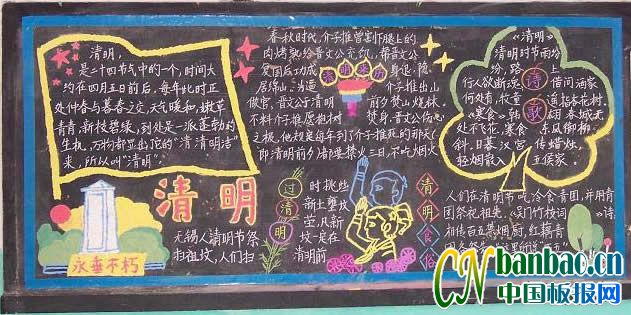 清明，
是二十四节气中的一个，时间大
约在四月五日前后，每年此时正
处仲春与暮春之交，天气暖和，嫩草
青青，新枝碧绿，到处是一派蓬勃的
生机，万物都显出陀的“清清明洁”
来，所以叫“清明”。
春秋时代，介子推曾割下腿上的
肉烤熟给晋文公充饥，帮晋文公
复国后功成身退，隐
居绵山。当逼介子推出山
做官，晋文公清明前夕焚山烧林，
不料介子推愿抱树焚身。晋文公伤心
之极，他规定每年到了介子推死的那天(
即清明前夕)都要禁火三日，不吃烟火
清明来历
《清明》
清明时节雨纷
纷，路上
行人欲断魂。借问酒家
何处有，牧童遥指杏花村。
《寒食》韩翃 春城无
处不飞花，寒食东风御柳
斜。日暮汉宫传蜡烛，
轻烟散入五侯家。
诗歌
清明
永垂不朽
无锡人清明节祭
扫祖坟，人们扫
过清明
时挑些
新土壅坟
茔，凡新
坟一定在
清明前
清明食俗
人们在清明节吃冷食青团，并用青
团祭祀祖先。《吴门竹枝词》诗
相传百五禁烟厨，红藕青
CN banbao.cn
中国板报网